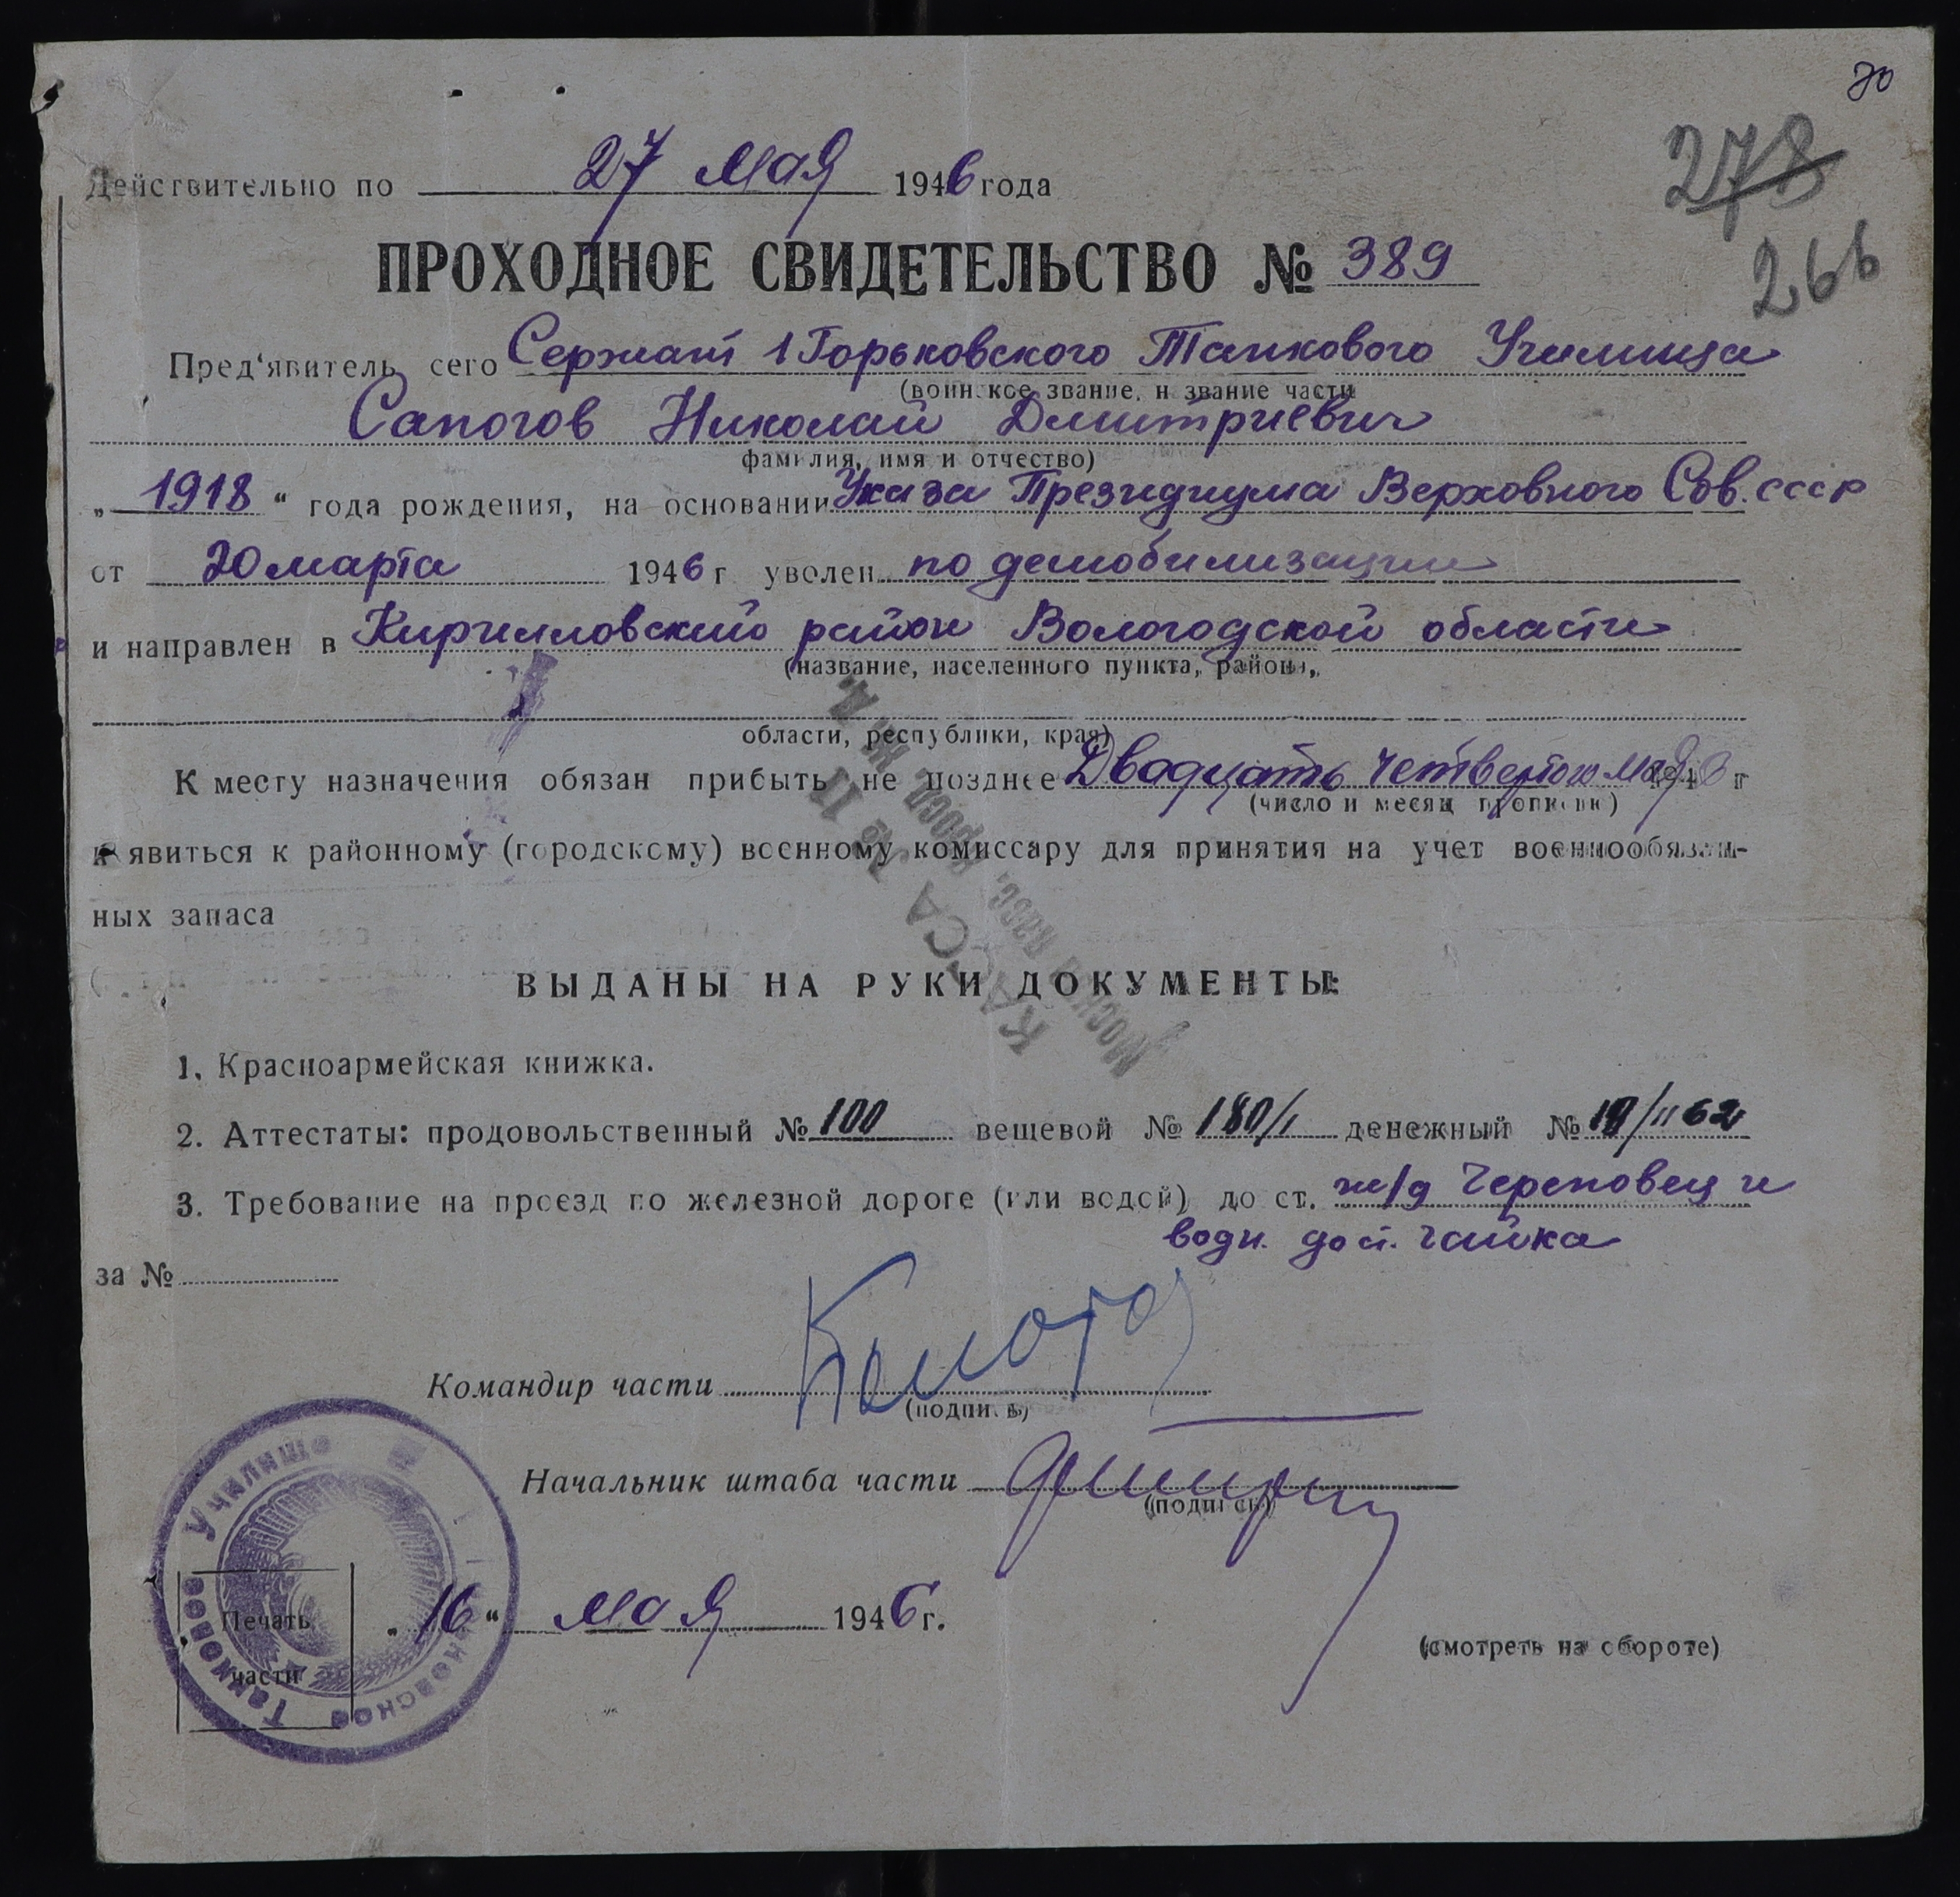 70
278
266
Действительно по 27 мая 1946 года
ПРОХОДНОЕ СВИДЕТЕЛЬСТВО № 389
Пред'явитель сего Сержант 1 Горьковского Танкового Училища
(воинское звание, название части
Сапогов Николай Дмитриевич
фамилия, имя и отчество)
„1918“ года рождения, на основании Указа Президиума Верховного Сов. СССР
от 20 марта 1946 г уволен по демобилизации
и направлен в Кирилловский район Вологодской области
(название, населенного пункта, района,
области, республики, края)
К месту назначения обязан прибыть не позднее Двадцать четвертого мая 1946 г
(число и месяц прописью)
и явиться к районному (городскому) военному комиссару для принятия на учет военнообязан-
ных запаса
КАССА № 11
Москва пасс. ж. д.
ВЫДАНЫ НА РУКИ ДОКУМЕНТЫ:
1. Красноармейская книжка.
2. Аттестаты: продовольственный № 100 вещевой № 180/1 денежный №
3. Требование на проезд по железной дороге (или водой) до ст. ж/д Череповец и
водн. до п. Чайка
за №
Командир части
(подпись)
Начальник штаба части
(подпись)
Танковое Училище
Печать
части
„16“ мая 1946 г.
(смотреть на обороте)